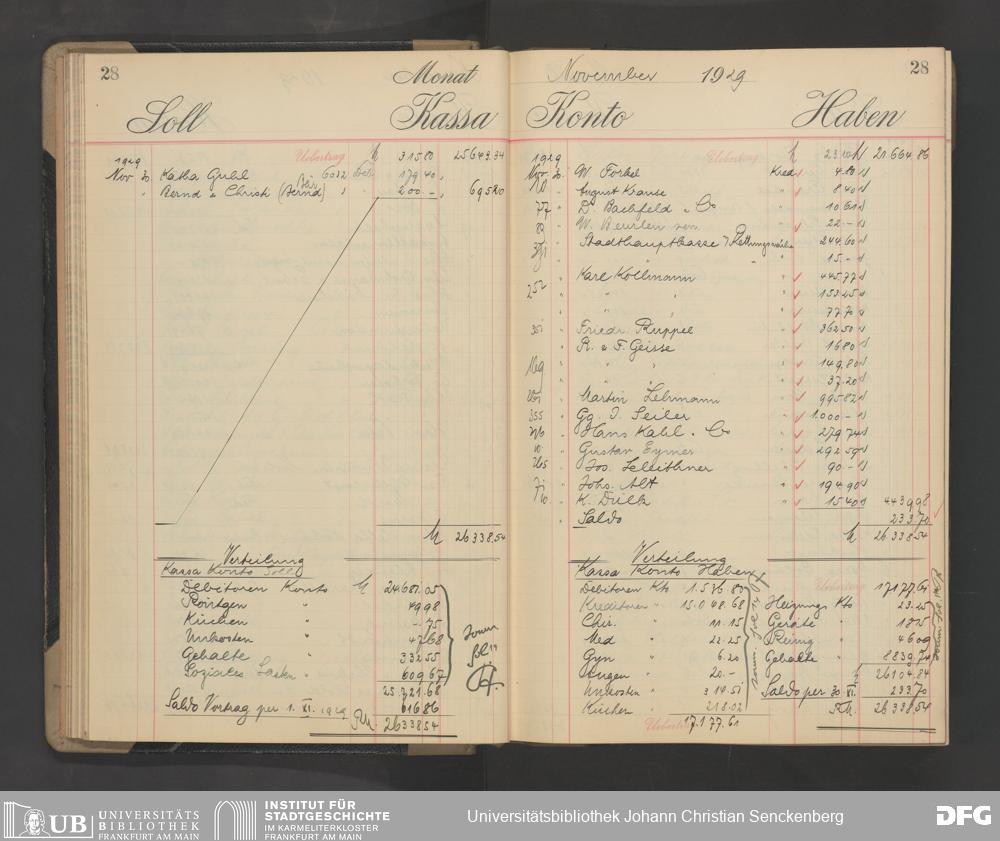 28
Monat
Soll Kassa
Uebertrag M 315.80 25643.34
1929
Nov 30 Katha Guhl 6032 179.40
" Bernd & Christ (Bernd) " 200.- 695.20
M 26338.54
Verteilung
Kassa Konto Soll
Debitoren Konto M 24681.05
Röntgen " 49.98
Küchen " -.75
Unkosten " 47.68
Gehalte " 332.55
Soziales Lasten " 609.67
25.721.68
Saldo Vortrag per 1. XI. 1929 616.86
RM. 26338.54
November 1929
28
Konto Haben
1929 Uebertrag M 21.664.86
Nov 30 W. Forbel Kred. 4.80
August Krause " 8.40
D. Bachfeld & Co " 10.61
W. Beurlen sen. " 22.-
Stadthauptkasse 244.60
" " 15.-
252 Karl Kollmann " 445.77
" " " 153.25
" " " 77.70
Friedr. Ruppel " 362.50
R. & F. Geisse " 16.80
" " " 149.80
" " " 37.20
Martin Lehmann " 995.82
355 Gg. J. Seiler " 1.000.-
Hans Kahl & Co " 279.74
Gustav Eymer " 292.59
Jos. Leleithner " 90.-
Johs. Alt " 194.90
K. Dilk " 15.40 4439.98
" Saldo 233.70
M 26338.54
Verteilung
Kassa Konto Haben
Debitoren Kto 1.536.80 Uebertrag 17177.61
Kreditoren " 15.048.68 Heizungs Kto 23.25
Chir. " 11.15 Geräte " 18.75
Med " 22.25 Reinig. " 46.09
Gyn " 6.20 Gehalte " 8839.74
Zungen " 20.- 26104.84
Unkosten " 314.51 Saldo per 30. XI. 233.70
Küchen " 218.02 RM. 26338.54
Uebertrag 17.177.61
UB UNIVERSITÄTS
BIBLIOTHEK
FRANKFURT AM MAIN
INSTITUT FÜR
STADTGESCHICHTE
IM KARMELITERKLOSTER
FRANKFURT AM MAIN
Universitätsbibliothek Johann Christian Senckenberg
DFG